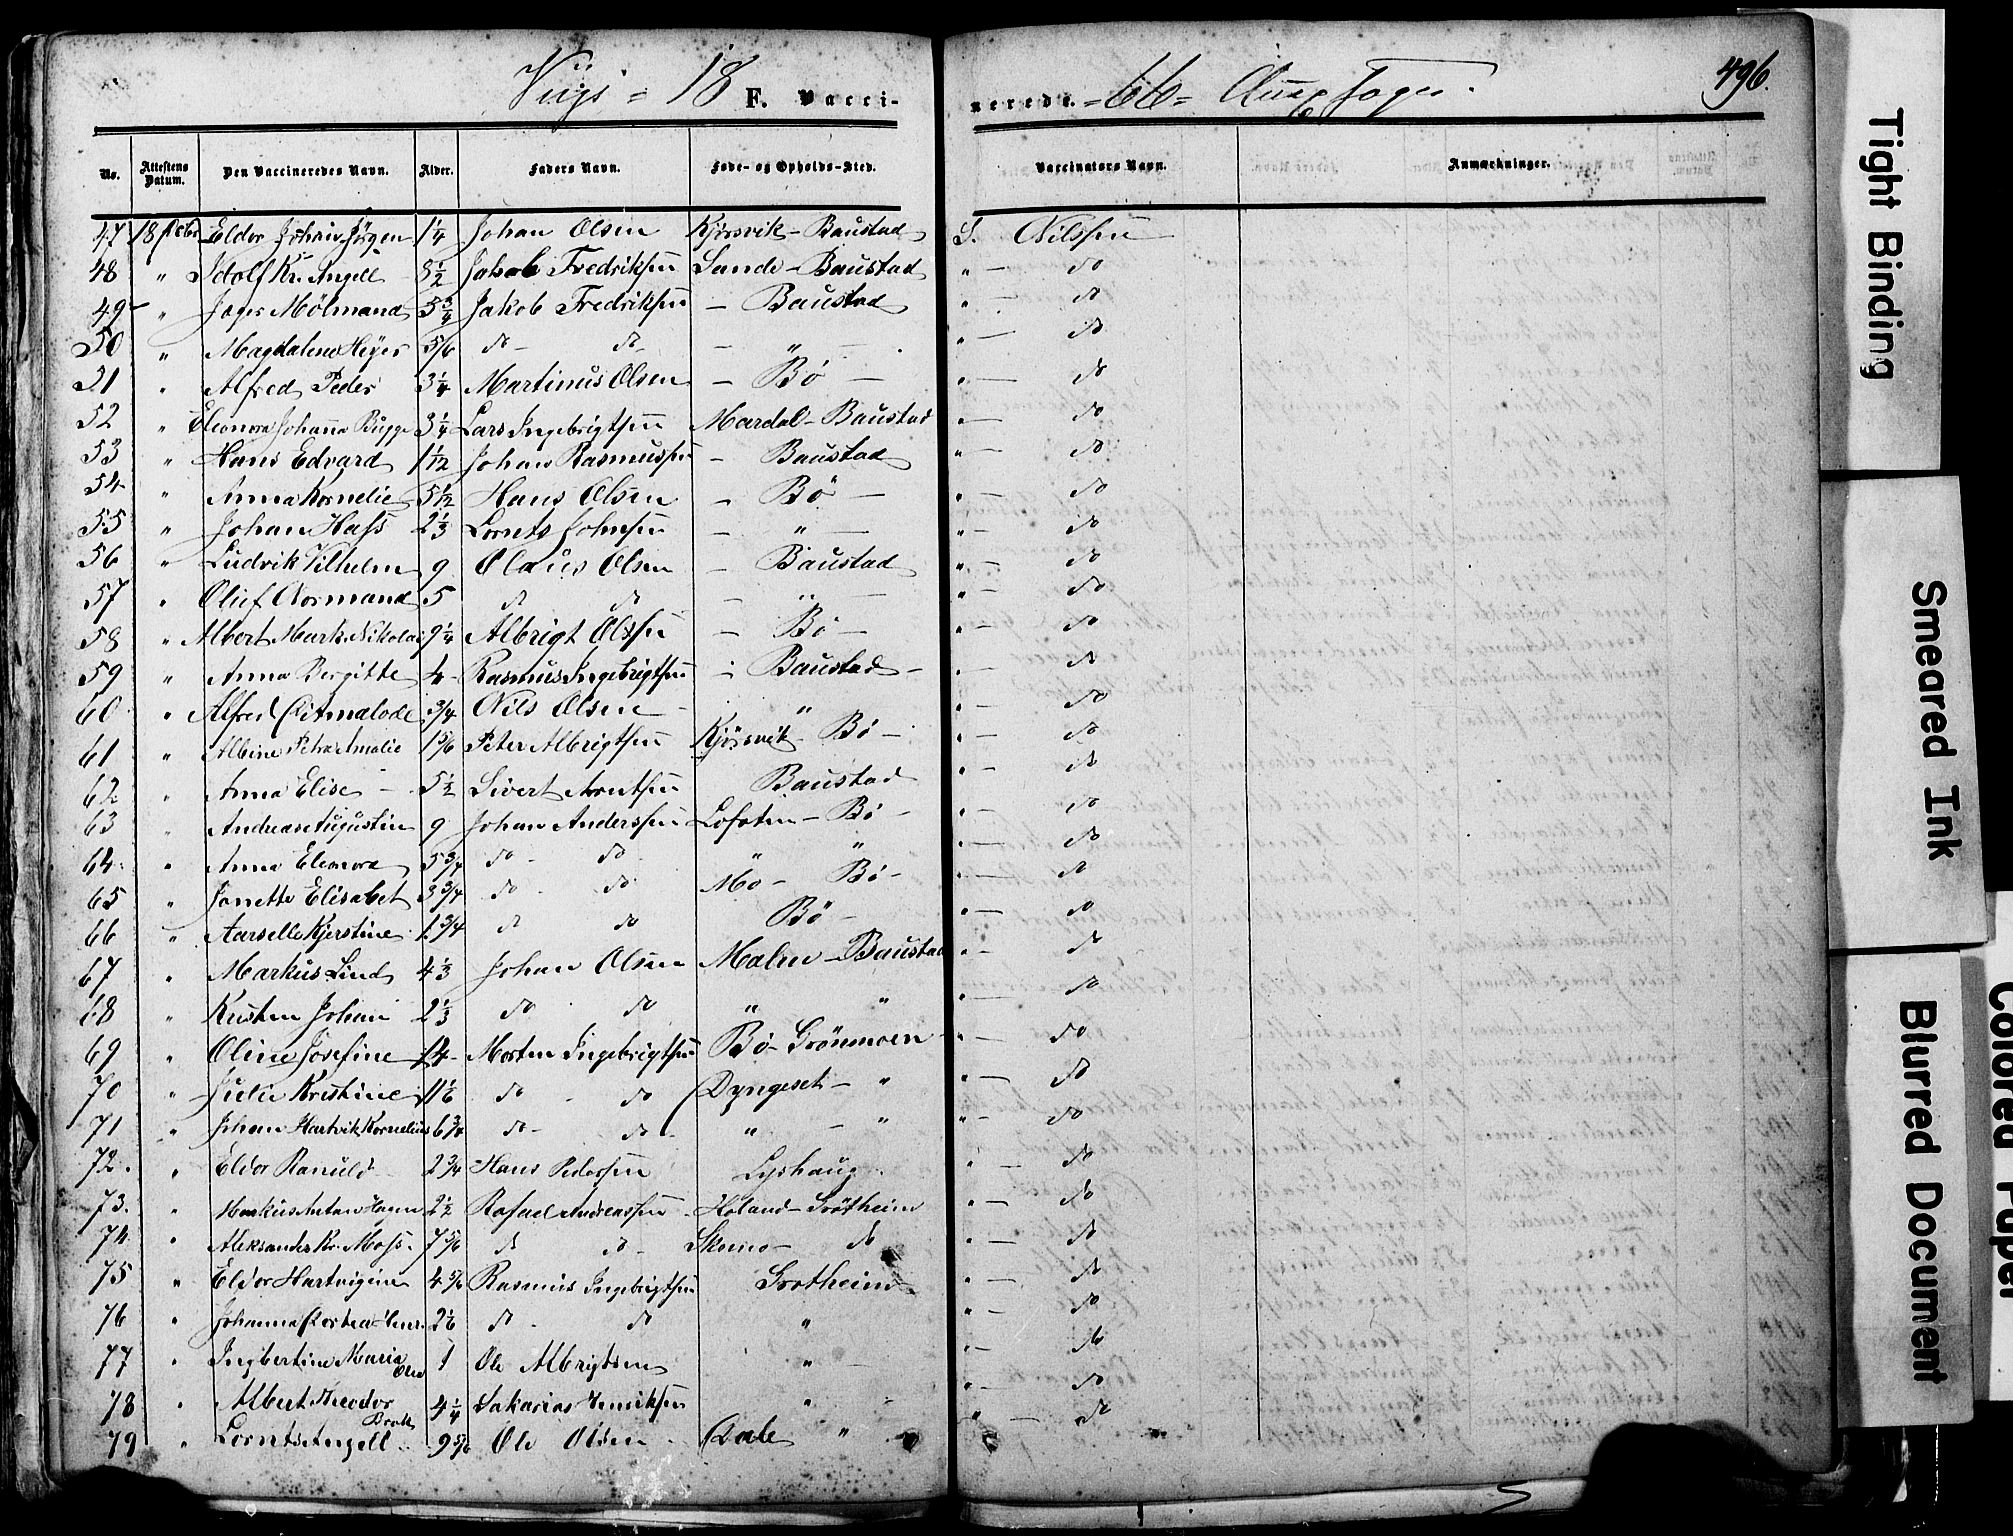 Viigs = 18 F. Vacci- nerede. = 66 =
496.
No. Attestens Datum. Den Vaccineredes Navn. Alder. Faders Navn. Føde- og Opholds-Sted. Vaccinators Navn. Anmærkninger.
47 18 Eldor Johan Jörgen 1 1/4 Johan Olsen Kjörsvik - Baustad S. Nilssen
48 " Idolf Kr. Angell 8 1/2 Jakob Fredriksen Sande - Baustad " — do
49 " Joger Mölmand 5 3/4 Jakob Fredriksen — Baustad " — do
50 " Magdalena Heyer 5/6 do — do — " — " — do
51 " Alfred Peder 3 1/4 Martinus Olsen — Bö — " — do
52 " Eleonora Johanna Bugge 3 1/4 Lars Ingebrigtsen Mardal - Baustad " — do
53 " Hans Edvard 1 1/12 Johan Rasmussen - Baustad " — do
54 " Anna Kornelie 5 1/12 Hans Olsen - Bö — " — do
55 " Johan Hass 2 1/3 Lornts Johnsen — " — " — do
56 " Ludvik Vilhelm 9 Olaus Olsen — Baustad " — do
57 " Oluf Normand 5 do do — " — " — do
58 " Albert Mark. Nikolai 9 1/4 Albrigt Olsen — Bö — " — do
59 " Anna Birgitte 4 Rasmus Ingebrigtsen - Baustad - " — do
60 " Alfred 3/4 Nils Olsen — " " — do
61 " Albine Petra Amalie 1 5/6 Peter Albrigtsen Kjörsvik - Bö - " — do
62 " Anna Elise - 5 1/2 Sivert Arntsen Baustad " — do
63 " Andreas Augustin 9 Johan Anderssen Lofoten - Bö - " — do
64 " Anna Eleonora 5 3/4 do - do - " " " — do
65 " Janette Elisabet 3 3/4 do - do Mo - Bö - " — do
66 " Aarselle Kjerstine 1 3/4 do do Bö - " — do
67 " Markus Lind 4 1/3 Johan Olsen Malen - Baustad " — do
68 " Kristen Johan 2 1/3 do do " " " — do
69 " Oline Josefine 14 Morten Ingebrigtsen Bö - Grönmoen - " — do
70 " Julie Kristine 11 1/6 do - do Dyngeset - " " — do
71 " Johan Hartvik Kornelius 6 3/4 do - do - " — " " — do
72. " Eldor Ranuld 2 3/4 Hans Pedersen Lyshaug " — do
73. " Markus Anton Hagen 2 1/2 Rafael Andreassen Höland - Grötheim " — do
74. " Aleksander Kr. Moss. 7 5/6 do do - Skomo - do " — do
75 " Eldor Hartvigine 4 5/6 Rasmus Ingebrigtsen Grotheim " — do
76 " Johanna 2 1/6 do - do " " — do
77 " Ingbertine Maria 1 Ole Albrigtsen " - " — do
78 " Albert Theodor 4 1/4 Sakarias Henriksen " " — do
79 " Lornts Angell 9 5/6 Ole Olsen Dale " " — do
Tight Binding
Smeared Ink
Blurred Document
Colored Paper